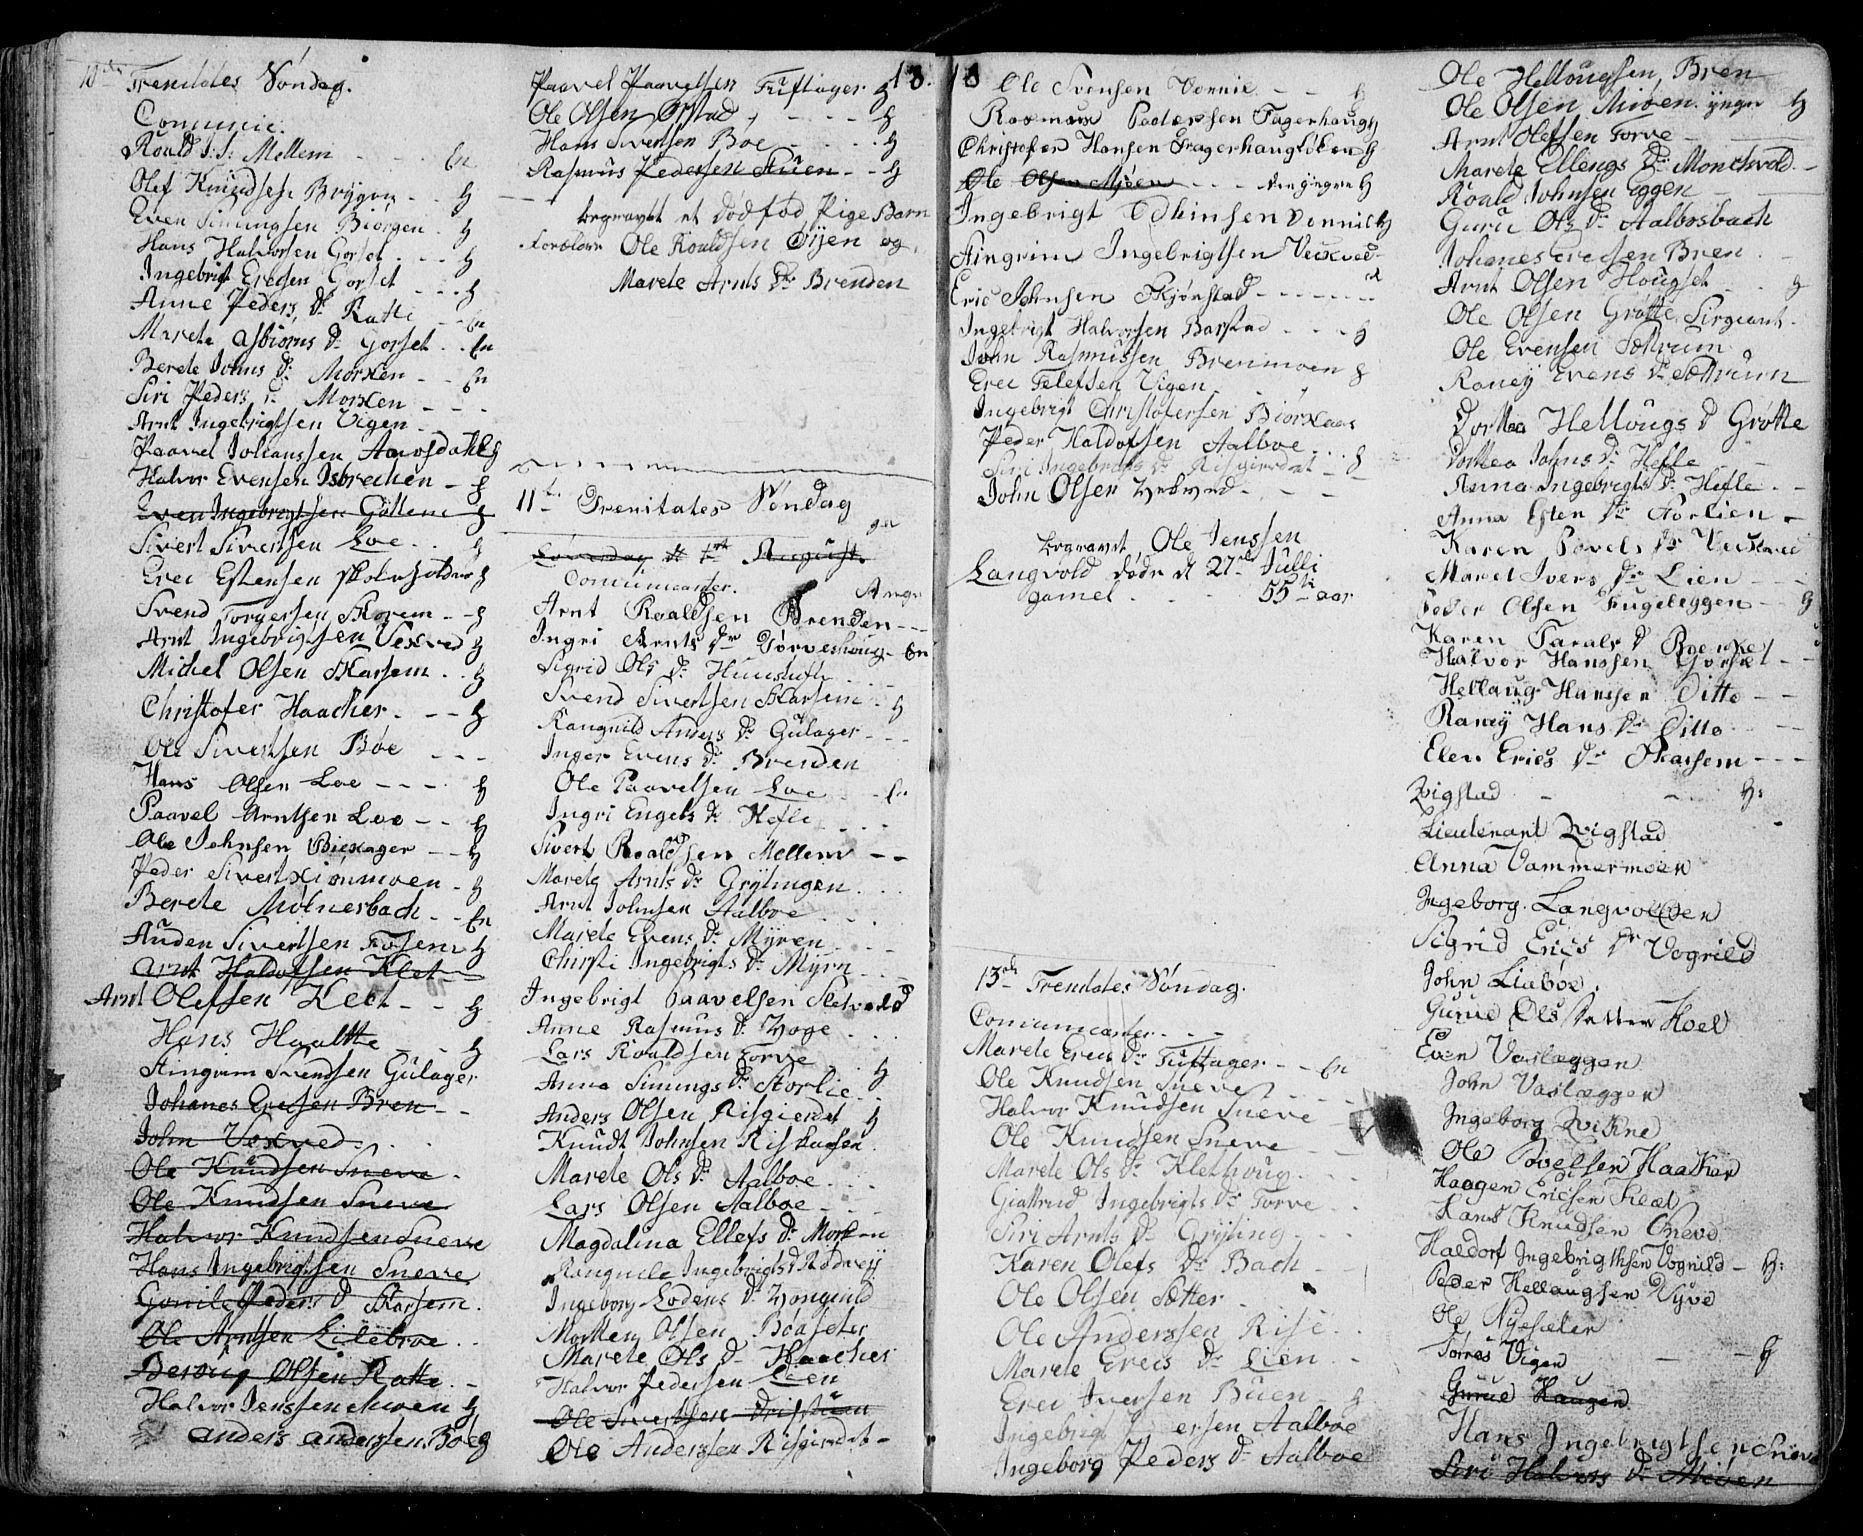 10de Trenitates Søndag.
Comunic.
Roald J: S: Mellem - - - En
Olef Knudsen Bryggen - - H
Even Simingsen Biørgen - H
Hans Halvorsen Gorset - - - H
Ingebrigt Erecsen Gorset - - - H
Anne Peders dr Ratte - - En
Marete Asbiørns dr Gorset - - En
Berete Johns dr Morken - - En
Siri Peders dr Morken - - -
Arnt Ingebrigtsen Vigen -
Paavel Johanssen Aamosdahl H
Halvor Evensen Isbrechen - H
Even Ingebrigtsen Gottem H
Sivert Sivertsen Loe - - H
Erec Estensen Skoleholder H
Svend Torgersen Skorem - - H
Arnt Ingebrigtsen Vexved H
Michel Olsen Skarsem - - H
Christofer Haacker - - - H
Ole Sivertsen Bøe - - -
Hans Olsen Loe - - - - H
Paavel Arntsen Loe - - H
Ole Johnsen Biexager - - H
Peder Sivert Kiønmoen - H
Berete Mølnersbach - - En
Auden Sivertsen Fosem H
Arnt Haldofsen Klet
Arnt Olefssen Kleet - - H
Hans Haaltte - - H
Stingrim Svendsen Gulager
Johanes Erecsen Bren - -
John Voxved - - -
Ole Knudsen Sneve -
Ole Knudsen Sneve
Halvor Knudsen Sneve
Hans Ingebrigtsen Sneve
Gonile Peders d Skarsem.
Ole Arntsen Lilebroe - -
Olsen Ratte - -
Halvor Jenssen Moen H
Anders Anderssen Boeg
Paavel Paavelsen Tuftager H 18.
Ole Olsen Ofstad - - - - H
Hans Sivertsen Bøe - - - - H
Rasmus Pedersen Stuen - - H
begravet et dødfød Pige Barn
forældre Ole Roaldsen Øyen og
Marete Arnts dr Brenden
11te Trenitates Søndag
Løverdag d 1ste August
Comunicanter.
Arnt Roaldsen Brenden - - -
Ingri Arnts dr Tørveshoug - En
Sigrid Ols dr
Svend Sivertsen Skarsem - H
Rangnild Anders dr Gulager - - -
Inger Evens dr Brenden
Ole Paavelsen Loe - - En
Ingri Engels dr Hefle - - -
Sivert Roaldsen Mellem - -
Marete Arnts dr Grytingen - - -
Arnt Johnsen Aalboe - - -
Marete Evens dr Myren - - -
Chirsti Ingebrigts dr Myrn - - -
Ingebrigt Paavelsen Sletvold
Anne Rasmus dr Voge - - -
Lars Roaldsen Torve
Anne Simings dr Storlie - - H
Anders Olsen Risgierdet H
Knudt Johnsen
Marete Ols dr Aalboe - - -
Lars Olsen Aalboe - - - -
Magdalina Ellefs dr Morken
Rangnile Ingebrigts d
Ingeborg Lodens dr Vongnild
Morten Olsen
Marete Ols dr Haacker
Halvor Pedersen Lien
Ole Sivertsen Dristuen
Ole Anderssen Risgierdet -
18 Ole Svensen Vonnie - - - H
Rasmus Paalersen Fagerhaug H
Christofer Hansen Fragerhaugløken H
Ole Olsen Mjøen - - - den yngre H
Ingebrigt Odhinsen Vonnil H
Stingrim Ingebrigtsen Vexved
Eric Johnsen Skjønstad - - - - - - -
Ingebrigt Halvorsen Barstad - - - H
John Rasmussen Brenmoen H
Erec Telefsen Vigen - - -
Ingebrigt Christofersen Biørkaas
Peder Haldofsen Aalboe - - -
Siri Ingebrigts dr Risgierdet - H
John Olsen Vekved - - - -
begravet Ole Jenssen
Langvold døde d 27de Julli
gamel - - - 55ti aar
13de Trenitates Søndag.
Comunicanter - - -
Marete Erecs dr Tuftager - - En
Ole Knudsen Sneve - - -
Halvor Knudsen Sneve - -
Ole Knudsen Sneve - - -
Marete Ols dr Klethoug - - -
Giættrud Ingebrigts dr Torve - -
Siri Arnts dr Gryting - - -
Karen Olefs dr Bach - -
Ole Olsen Sætter -
Ole Anderssen Rise - -
Marete Erecs dr Lien - -
Erec Iversen Buen - H
Ingebrigt ersen Aalboe
Ingeborg Peders dr Aalboe
Ole Hellougsen Bren
Ole Olsen Miøen yngr H
Arnt Olefsen Torve -
Marete Ellengs dr Monchvold -
Roald Johnsen Eggen -
Guru Ols dr Aalbosbach
Johanes Erecsen Bren - -
Arnt Olsen Hougset - - H
Ole Olsen Grøtte Sirgeant -
Ole Evensen Sættrum
Raney Evens dr Sættrum
Dorttea Hellougs d Grøtte
Dorttea Johns dr Hefle -
Anna Ingebrigts dr Hefle - -
Anna Esten dr Aorlien -
Karen Povels dr Vecved
Maret Ivers dr Lien - - -
Peder Olsen Fugeleggen - - H
Karen Taralds d
Halvor Hanssen Gorset - -
Hellaug Hanssen Ditto - -
Raney Hans dr Ditto - -
Elen Erics dr Skarsem - - -
Wigstad - - - H:
Lieutenant Wigstad
Anna Vammermoen
Ingeborg Langvolden
Sigrid Erics dr Vognild
John Liabøe.
Gurue Ols Sætter Hoel
Even Vaslæggen
John Vaslæggen
Ingeborg Wikne
Ole Poelsen Haaker
Haagen Ericsen Kleet
Hans Knudsen Sneve
Haldorf Ingebrigthsen Vognild - H:
Peder Hellaugsen Dyve
Ole Nysæter
Tørres Vigen - - H
Gurue Haugen
Hans Ingebrigtsen Sneve
Siri Halvors dr Miøen